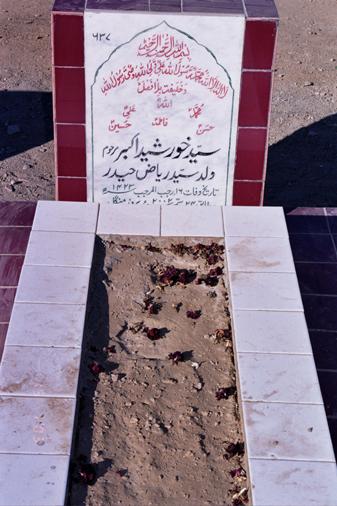 ۶۳۷
بسم الله الرحمن الرحیم
لا اله الا الله محمد رسول الله علی ولی الله وصی رسول الله
وخلیفته بلا فصل
الله
محمد علی
فاطمہ
حسن حسین
سید خورشید اکبر مرحوم
ولد سید ریاض حیدر
تاریخ وفات ۱۶ رجب المرجب ۱۴۲۳ھ